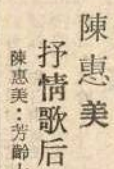 陳惠美
抒情歌后
陳惠美：芳齡